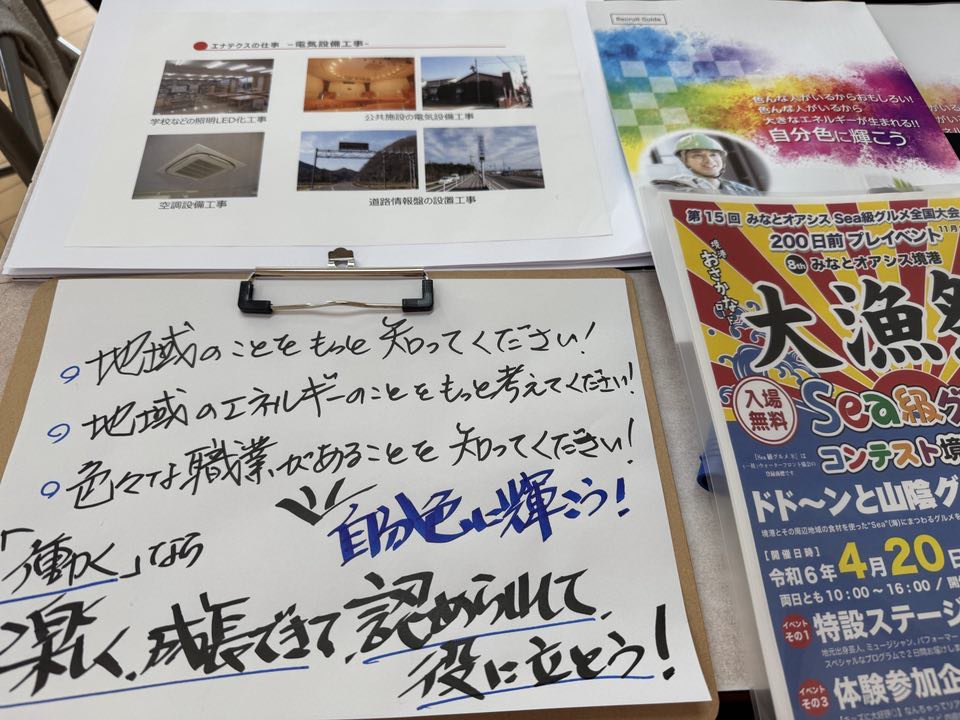 エナテクスの仕事 -電気設備工事-
学校などの照明LED化工事
公共施設の電気設備工事
空調設備工事
道路情報盤の設置工事
Recruit Guide
色んな人がいるからおもしろい!
色んな人がいるから
大きなエネルギーが生まれる!!
自分色に輝こう
地域のことをもっと知ってください!
地域のエネルギーのことをもっと考えてください!
色々な職業があることを知ってください!
自分色に輝こう!
「働く」なら
楽しく、成長できて、認められて、
役に立とう!
第15回 みなとオアシス Sea級グルメ全国大会
200日前 プレイベント
8th みなとオアシス境港
大漁祭
入場
無料
Sea級グ
コンテスト境
ドド〜ンと山陰グ
境港とその周辺地域の食材を使った"Sea"(海)にまつわるグルメを
[開催日時]
令和6年4月20日
両日とも10:00〜16:00/開
イベント
その1
特設ステージ
地元出身芸人、ミュージシャン、パフォーマー
スペシャルなプログラムで2日間お届けし
イベント
その3
体験参加企